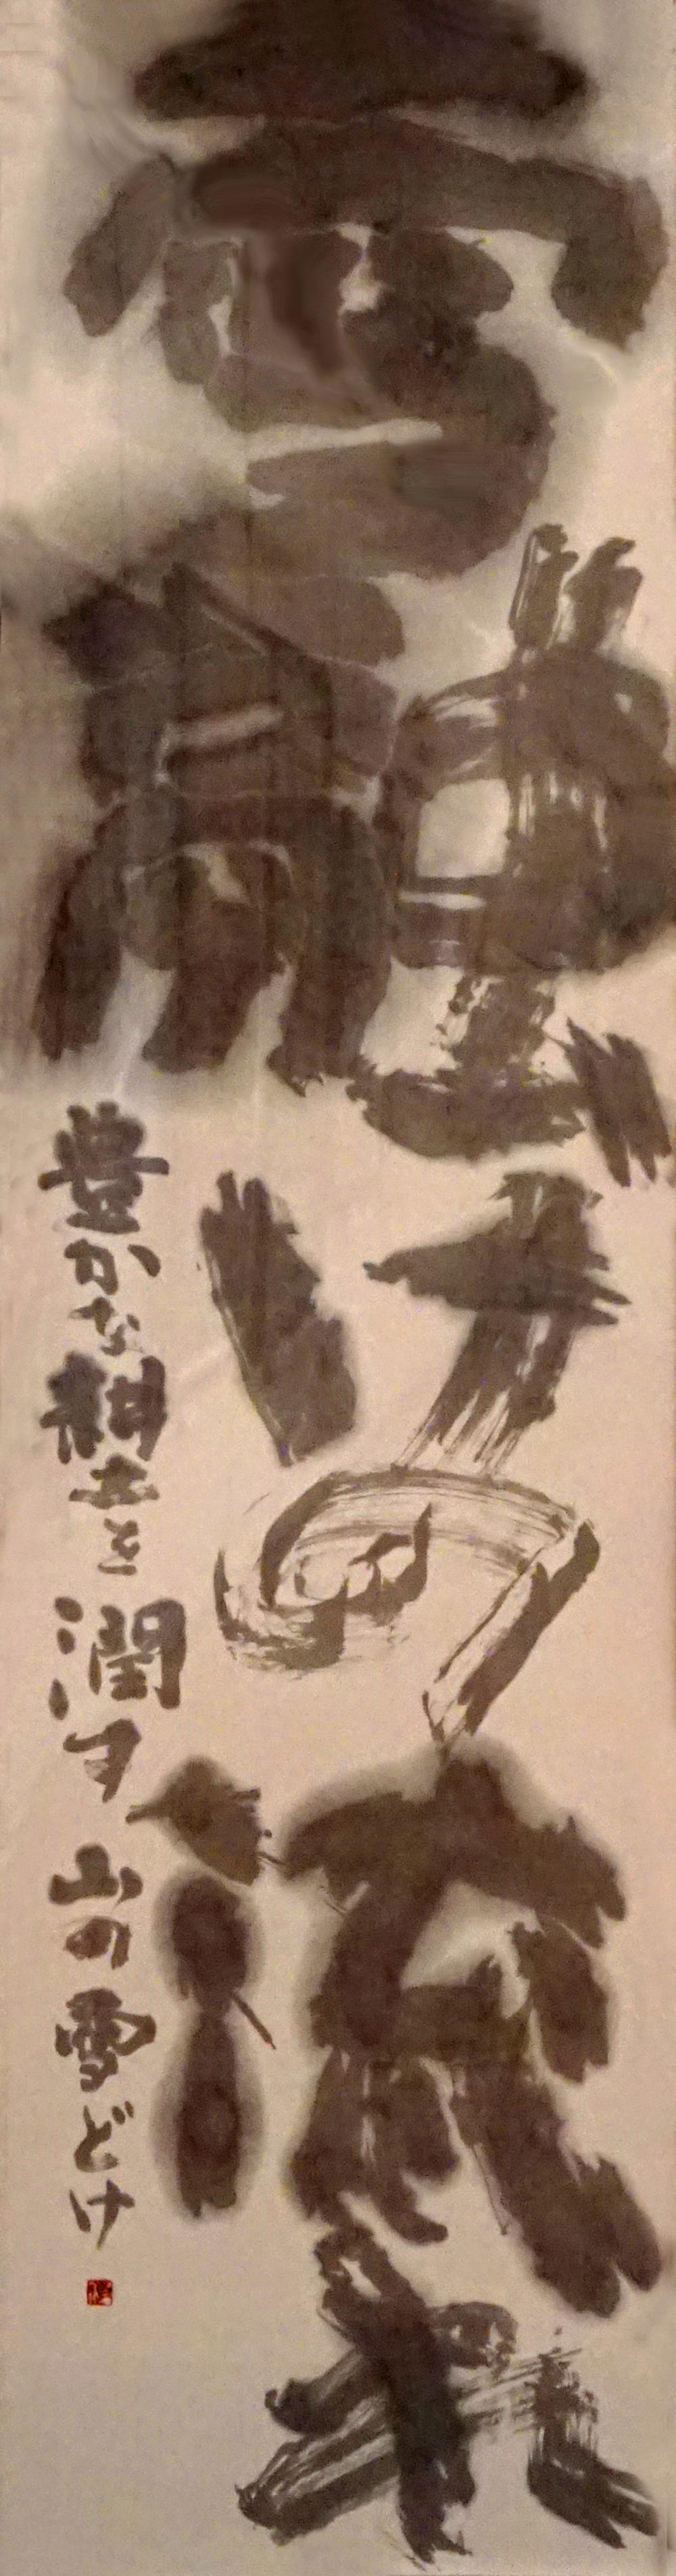 雪融けの流れ
豊かな耕土を潤す山の雪どけ